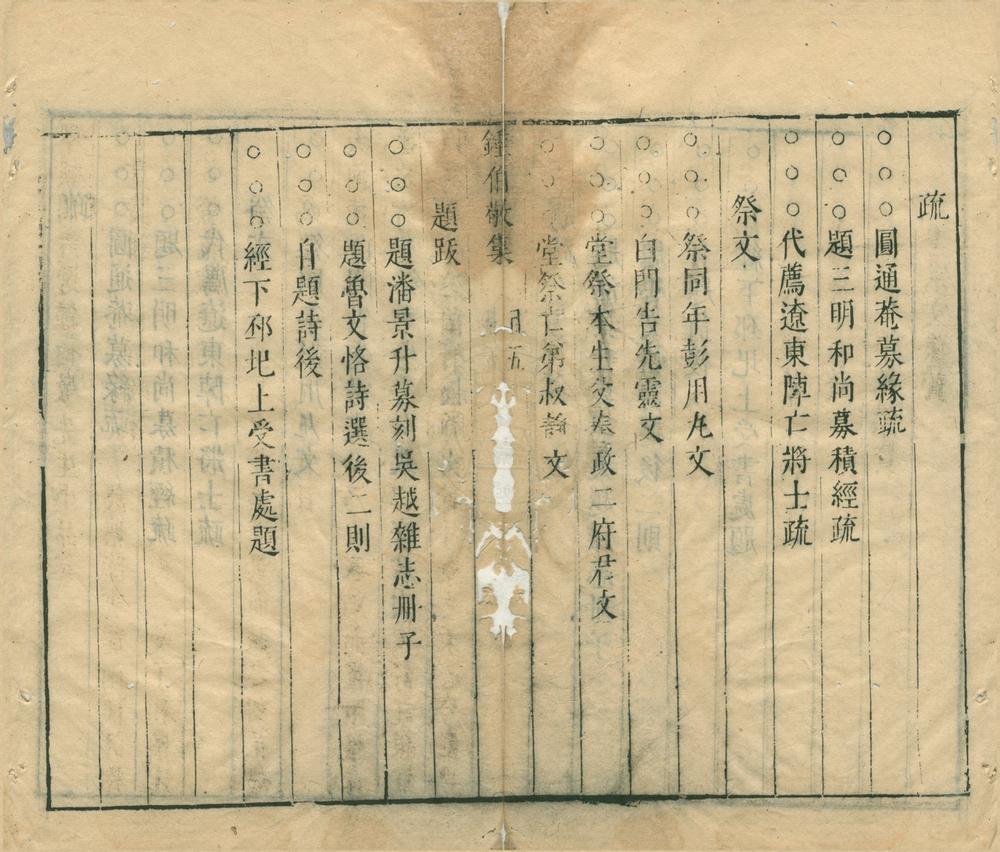 疏
○○○圓通菴募緣疏
○○○題三明和尚募積經疏
○○○代薦遼東陣亡將士疏
祭文
○○○祭同年彭用九文
○○○白門告先靈文
○○○堂祭本生父奉政二府君文
○○○堂祭亡弟叔靜文
鍾伯敬集
題跋
○○○題潘景升募刻吳越雜志冊子
○○○題魯文恪詩選後二則
○○○自題詩後
○○○經下邳圯上受書處題